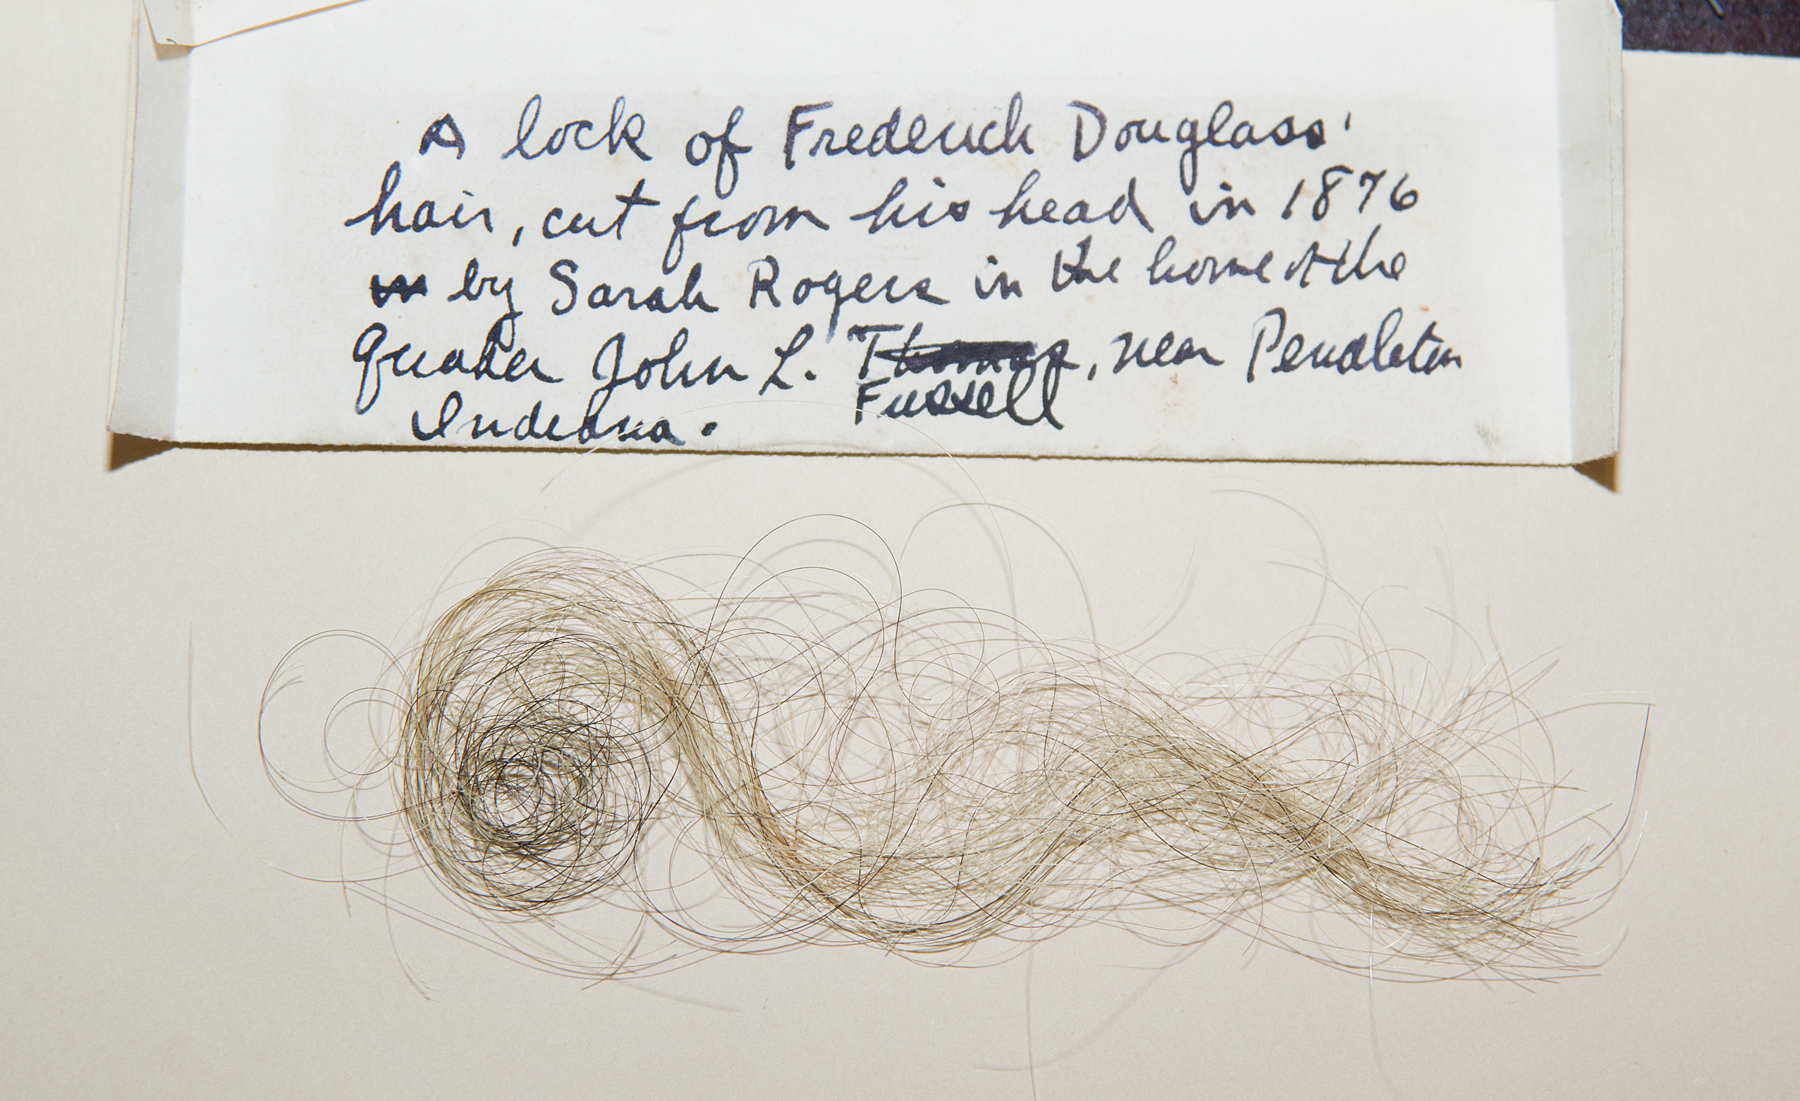 A lock of Frederick Douglass'
hair, cut from his head in 1876
by Sarah Rogers in the home of the
Quaker John L. Fussell, near Pendleton
Indiana.